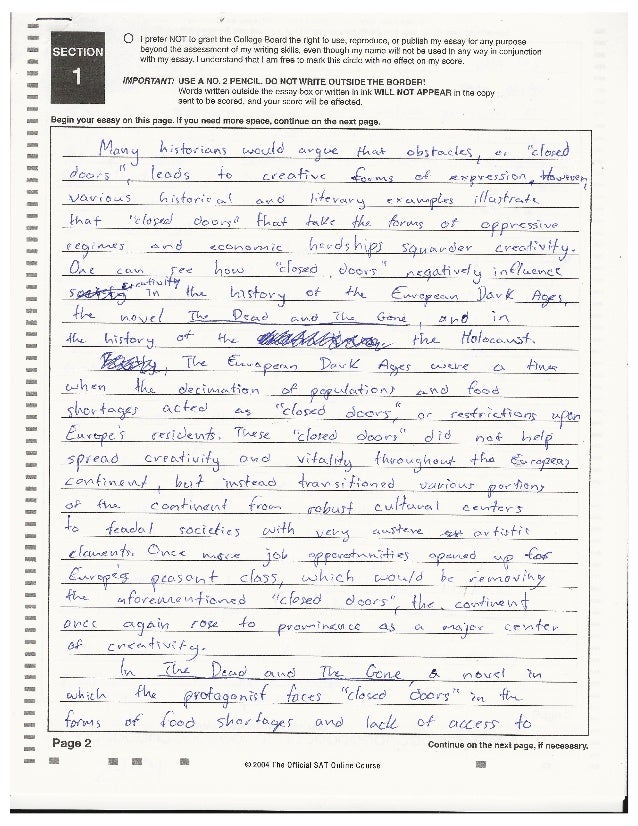 SECTION
1
I prefer NOT to grant the College Board the right to use, reproduce, or publish my essay for any purpose
beyond the assessment of my writing skills, even though my name will not be used in any way in conjunction
with my essay. I understand that I am free to mark this circle with no effect on my score.
IMPORTANT: USE A NO. 2 PENCIL. DO NOT WRITE OUTSIDE THE BORDER!
Words written outside the essay box or written in ink WILL NOT APPEAR in the copy
sent to be scored, and your score will be affected.
Begin your essay on this page. If you need more space, continue on the next page.
Many historians would argue that obstacles, or "closed
doors", leads to creative forms of expression, However,
various historical and literary examples illustrate
that "closed doors" that take the forms of oppressive
regimes and economic hardships squander creativity.
One can see how "closed doors" negatively influence
creativity in the history of the European Dark Ages,
the novel The Dead and The Gone, and in
the history of the the Holocaust.
The European Dark Ages were a time
when the decimation of populations and food
shortages acted as "closed doors," or restrictions upon
Europe's residents. These "closed doors" did not help
spread creativity and vitality throughout the European
continent, but instead transitioned various portions
of the continent from robust cultural centers
to feudal societies with very austere artistic
elements. Once more job opportunities opened up for
Europe's peasant class, which would be removing
the aforementioned "closed doors", the continent
once again rose to prominence as a major center
of creativity.
In The Dead and The Gone, a novel in
which the protagonist faces "closed doors" in the
forms of food shortages and lack of access to
Page 2
Continue on the next page, if necessary.
© 2004 The Official SAT Online Course